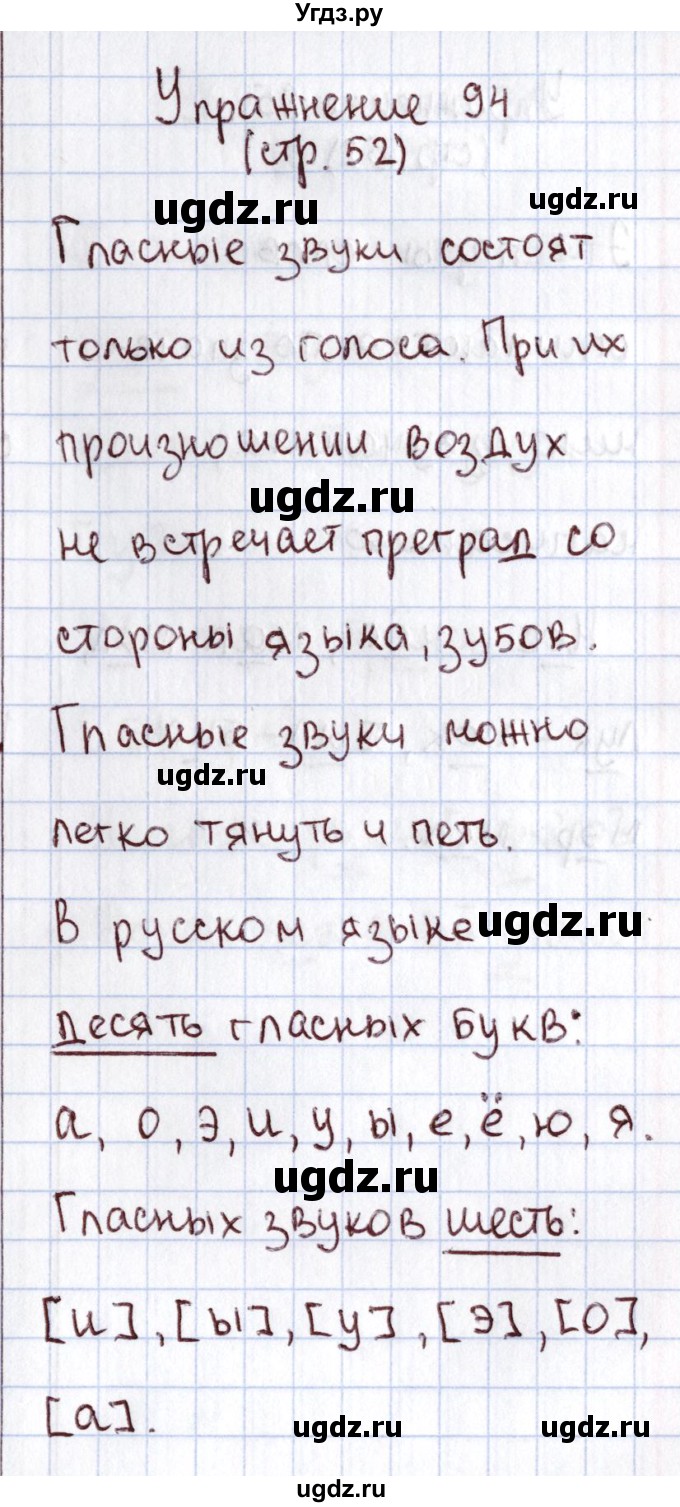 Угдз.ру
Упражнение 94
(стр. 52)
ugdz.ru
Гласные звуки состоят
только из голоса. При их
произношении воздух
ugdz.ru
не встречает преград со
стороны языка, зубов.
Гласные звуки можно
ugdz.ru
легко тянуть и петь.
В русском языке ugdz.ru
десять гласных букв:
а, о, э, и, у, ы, е, ё, ю, я.
ugdz.ru
Гласных звуков шесть:
[и], [ы], [у], [э], [о],
[а]. ugdz.ru ugdz.ru
ugdz.ru